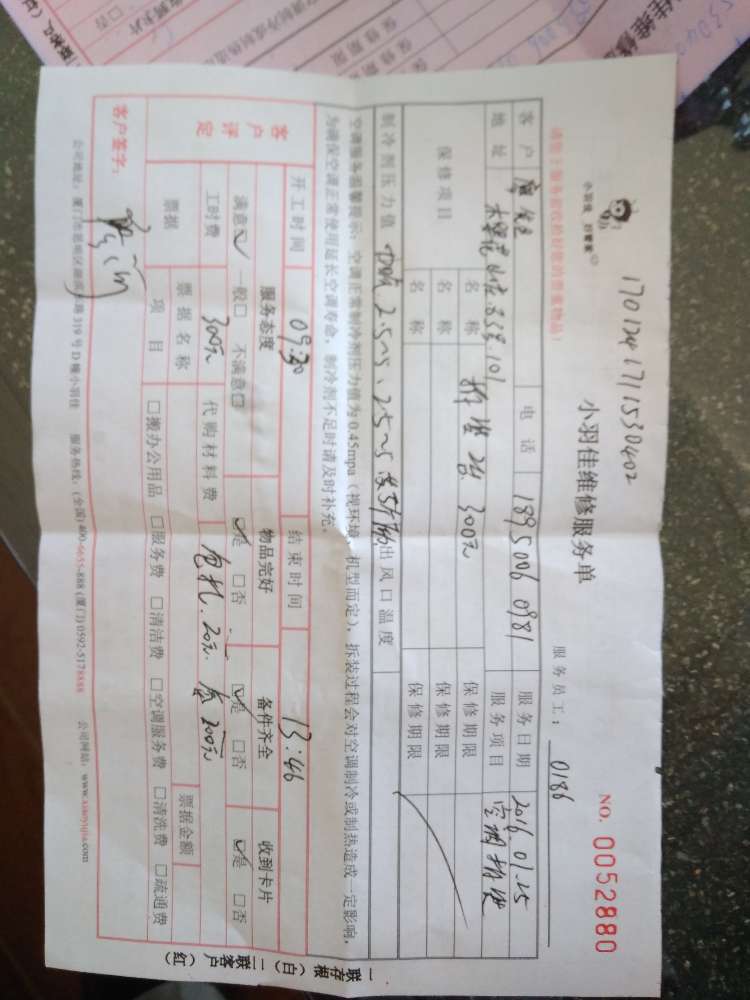 1701241711530402
小羽佳 好管家
小羽佳维修服务单
NO. 0052880
服务员工: 0186
客户 电话 18950060981 服务日期 2016.01.25
地址 服务项目 空调拆装
保修项目 名称 拆装 300元 保修期限
名称 保修期限
名称 保修期限
制冷剂压力值 出风口温度
空调服务温馨提示：空调正常制冷剂压力值为0.45mpa（视环境、机型而定），拆装过程会对空调制冷或制热造成一定影响，
为确保空调正常使用延长空调寿命，制冷剂不足时请及时补充。
开工时间 09:30 结束时间 13:46
客户评定 服务态度 物品完好 备件齐全 收到卡片
满意☑ 一般□ 不满意□ ☑是 □否 ☑是 □否 ☑是 □否
工时费 300元 代购材料费 包扎.20元. 200元
票据 票据名称 票据金额
项目 □搬办公用品 □服务费 □清洁费 □空调服务费 □清洗费 □疏通费
客户签字:
公司地址：厦门市思明区 319号D幢小羽佳 服务热线：(全国)400-6655-888 (厦门)0592-5178888 公司网站：www.xiaoyujia.com
一联存根（白）二联客户（红）